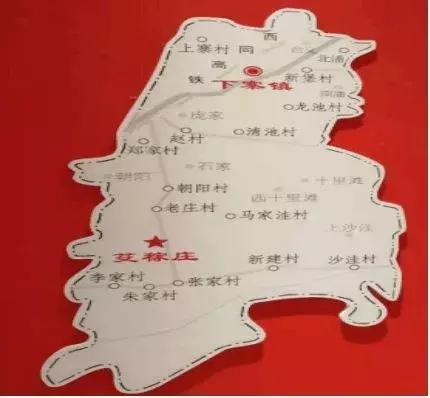 西
上寨村
同
高
铁
北浦
新堡村
下寨镇
龙池村
庞家
赵村
清池村
郑家村
石家
朝阳
朝阳村
十里滩
西十里滩
老庄村
马家洼村
上沙洼
艾蒿庄
李家村
朱家村
张家村
新建村
沙洼村